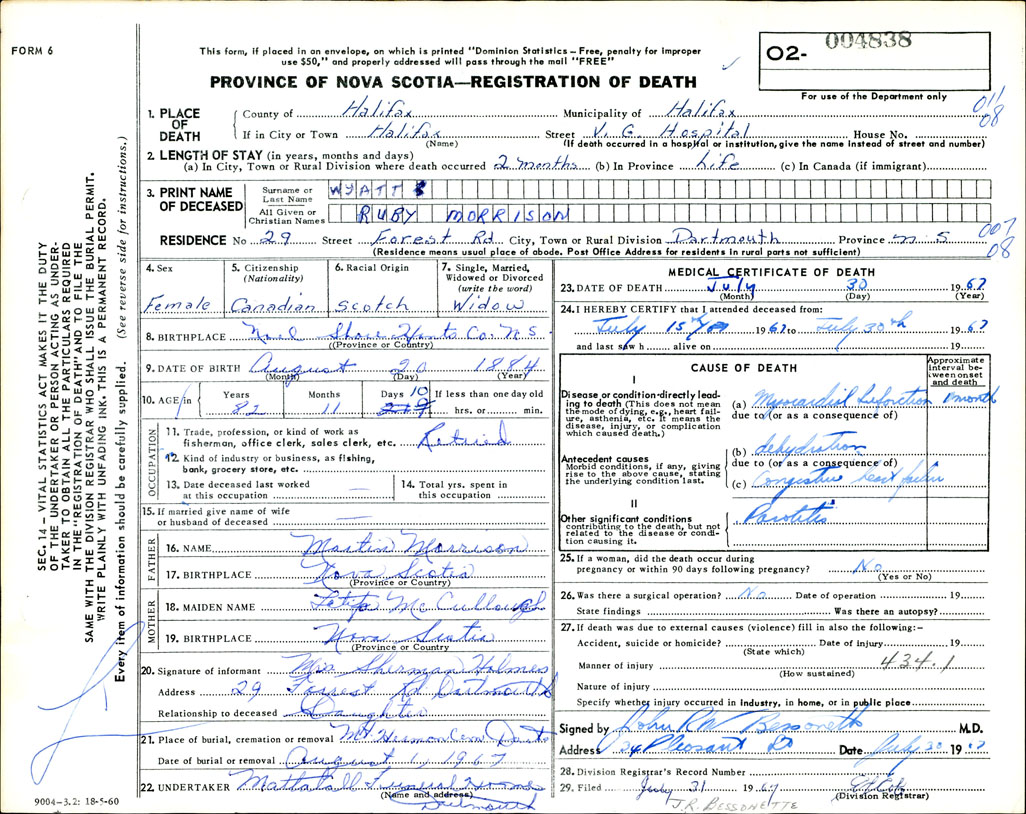 FORM 6
This form, if placed in an envelope, on which is printed "Dominion Statistics – Free, penalty for improper
use $50," and properly addressed will pass through the mail "FREE"
PROVINCE OF NOVA SCOTIA—REGISTRATION OF DEATH
O2- 004838
For use of the Department only
011
08
SEC. 14 – VITAL STATISTICS ACT MAKES IT THE DUTY
OF THE UNDERTAKER OR PERSON ACTING AS UNDER-
TAKER TO OBTAIN ALL THE PARTICULARS REQUIRED
IN THE "REGISTRATION OF DEATH" AND TO FILE THE
SAME WITH THE DIVISION REGISTRAR WHO SHALL ISSUE THE BURIAL PERMIT.
WRITE PLAINLY WITH UNFADING INK. THIS IS A PERMANENT RECORD.
Every item of information should be carefully supplied. (See reverse side for instructions.)
1. PLACE OF DEATH
County of Halifax Municipality of Halifax
If in City or Town Halifax Street V. G. Hospital House No.
(Name) (If death occurred in a hospital or institution, give the name instead of street and number)
2. LENGTH OF STAY (in years, months and days)
(a) In City, Town or Rural Division where death occurred 2 months (b) In Province Life (c) In Canada (if immigrant)
3. PRINT NAME OF DECEASED
Surname or Last Name WYATT
All Given or Christian Names RUBY MORRISON
RESIDENCE No 29 Street Forest Rd City, Town or Rural Division Dartmouth Province N S
007
08
(Residence means usual place of abode. Post Office Address for residents in rural parts not sufficient)
4. Sex Female
5. Citizenship (Nationality) Canadian
6. Racial Origin Scotch
7. Single, Married, Widowed or Divorced (write the word) Widow
8. BIRTHPLACE Noel Shore Hants Co. N.S.
(Province or Country)
9. DATE OF BIRTH August 20 1884
(Month) (Day) (Year)
10. AGE Years 82 Months 11 Days 10 If less than one day old hrs. or min.
OCCUPATION
11. Trade, profession, or kind of work as
fisherman, office clerk, sales clerk, etc. Retired
12. Kind of industry or business, as fishing,
bank, grocery store, etc.
13. Date deceased last worked
at this occupation
14. Total yrs. spent in
this occupation
15. If married give name of wife
or husband of deceased —
FATHER
16. NAME Martin Morrison
17. BIRTHPLACE Nova Scotia
(Province or Country)
MOTHER
18. MAIDEN NAME McCullough
19. BIRTHPLACE Nova Scotia
(Province or Country)
20. Signature of informant Mrs Sherman Holmes
Address 29 Forrest Rd Dartmouth
Relationship to deceased Daughter
21. Place of burial, cremation or removal Mt Hermon Cem Dart
Date of burial or removal August 1, 1967
22. UNDERTAKER Mattatall Funeral Home
(Name and address) Dartmouth
9004–3.2: 18-5-60
MEDICAL CERTIFICATE OF DEATH
23. DATE OF DEATH July 30 1967
(Month) (Day) (Year)
24. I HEREBY CERTIFY that I attended deceased from:
July 15th 1967 to July 30th 1967
and last saw h alive on 19
CAUSE OF DEATH
Approximate interval between onset and death
I
Disease or condition directly leading to death (This does not mean the mode of dying, e.g., heart failure, asthenia, etc. It means the disease, injury, or complication which caused death.)
(a) Myocardial Infarction 1 month
due to (or as a consequence of)
Antecedent causes
Morbid conditions, if any, giving rise to the above cause, stating the underlying condition last.
(b) dehydration
due to (or as a consequence of)
(c) Congestive heart failure
II
Other significant conditions
contributing to the death, but not related to the disease or condition causing it.
Parotitis
25. If a woman, did the death occur during
pregnancy or within 90 days following pregnancy? No
(Yes or No)
26. Was there a surgical operation? No Date of operation 19
State findings Was there an autopsy?
27. If death was due to external causes (violence) fill in also the following:–
Accident, suicide or homicide? Date of injury 19
(State which)
Manner of injury 434.1
(How sustained)
Nature of injury
Specify whether injury occurred in industry, in home, or in public place
Signed by John R M Bessonette M.D.
Address 24 Pleasant St Date July 30 1967
28. Division Registrar's Record Number
29. Filed July 31 1967
(Division Registrar)
J.R. BESSONETTE